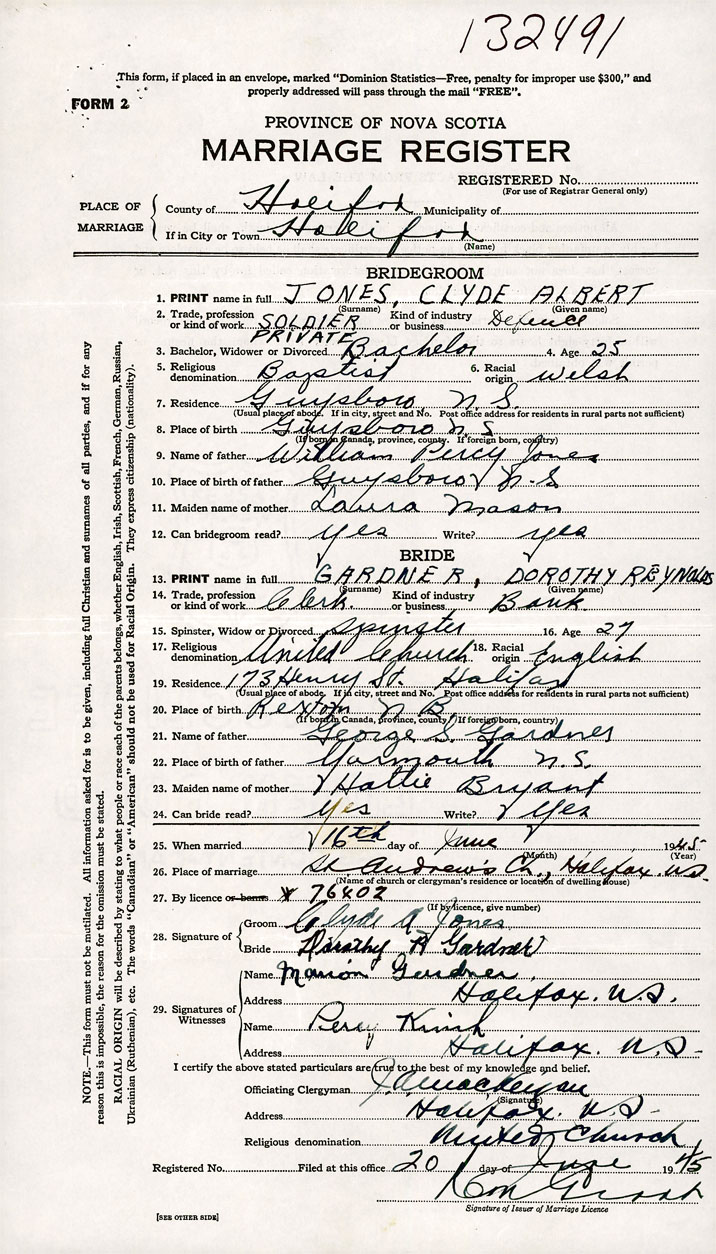 132491
This form, if placed in an envelope, marked "Dominion Statistics—Free, penalty for improper use $300," and
properly addressed will pass through the mail "FREE".
FORM 2
PROVINCE OF NOVA SCOTIA
MARRIAGE REGISTER
REGISTERED No.
(For use of Registrar General only)
PLACE OF MARRIAGE
County of Halifax Municipality of
If in City or Town Halifax
(Name)
BRIDEGROOM
1. PRINT name in full JONES, CLYDE ALBERT
(Surname) (Given name)
2. Trade, profession or kind of work SOLDIER PRIVATE Kind of industry or business Defence
3. Bachelor, Widower or Divorced Bachelor 4. Age 25
5. Religious denomination Baptist 6. Racial origin Welsh
7. Residence Guysboro N.S.
(Usual place of abode. If in city, street and No. Post office address for residents in rural parts not sufficient)
8. Place of birth Guysboro N.S
(If born in Canada, province, county. If foreign born, country)
9. Name of father William Percy Jones
10. Place of birth of father Guysboro N.S.
11. Maiden name of mother Laura Mason
12. Can bridegroom read? Yes Write? yes
BRIDE
13. PRINT name in full GARDNER, DOROTHY REYNOLDS
(Surname) (Given name)
14. Trade, profession or kind of work Clerk. Kind of industry or business Bank
15. Spinster, Widow or Divorced Spinster 16. Age 27
17. Religious denomination United Church 18. Racial origin English
19. Residence 173 Henry St. Halifax
(Usual place of abode. If in city, street and No. Post office address for residents in rural parts not sufficient)
20. Place of birth Rexton N.B.
(If born in Canada, province, county. If foreign born, country)
21. Name of father George S. Gardner
22. Place of birth of father Yarmouth N.S.
23. Maiden name of mother Hattie Bryant
24. Can bride read? Yes Write? Yes
25. When married 16th day of June 1945
(Month) (Year)
26. Place of marriage St. Andrew's Ch., Halifax. N.S.
(Name of church or clergyman's residence or location of dwelling house)
27. By licence or banns 76402
(If by licence, give number)
28. Signature of
Groom Clyde A Jones
Bride Dorothy R Gardner
29. Signatures of Witnesses
Name Marion Gardner.
Address Halifax. N.S.
Name Percy
Address Halifax. N.S.
I certify the above stated particulars are true to the best of my knowledge and belief.
Officiating Clergyman
(Signature)
Address Halifax. N.S.
Religious denomination United Church
Registered No. Filed at this office 20 day of June 1945
Signature of Issuer of Marriage Licence
[SEE OTHER SIDE]
NOTE.—This form must not be mutilated. All information asked for is to be given, including full Christian and surnames of all parties, and if for any
reason this is impossible, the reason for the omission must be stated.
RACIAL ORIGIN will be described by stating to what people or race each of the parents belongs, whether English, Irish, Scottish, French, German, Russian,
Ukrainian (Ruthenian), etc. The words "Canadian" or "American" should not be used for Racial Origin. They express citizenship (nationality).